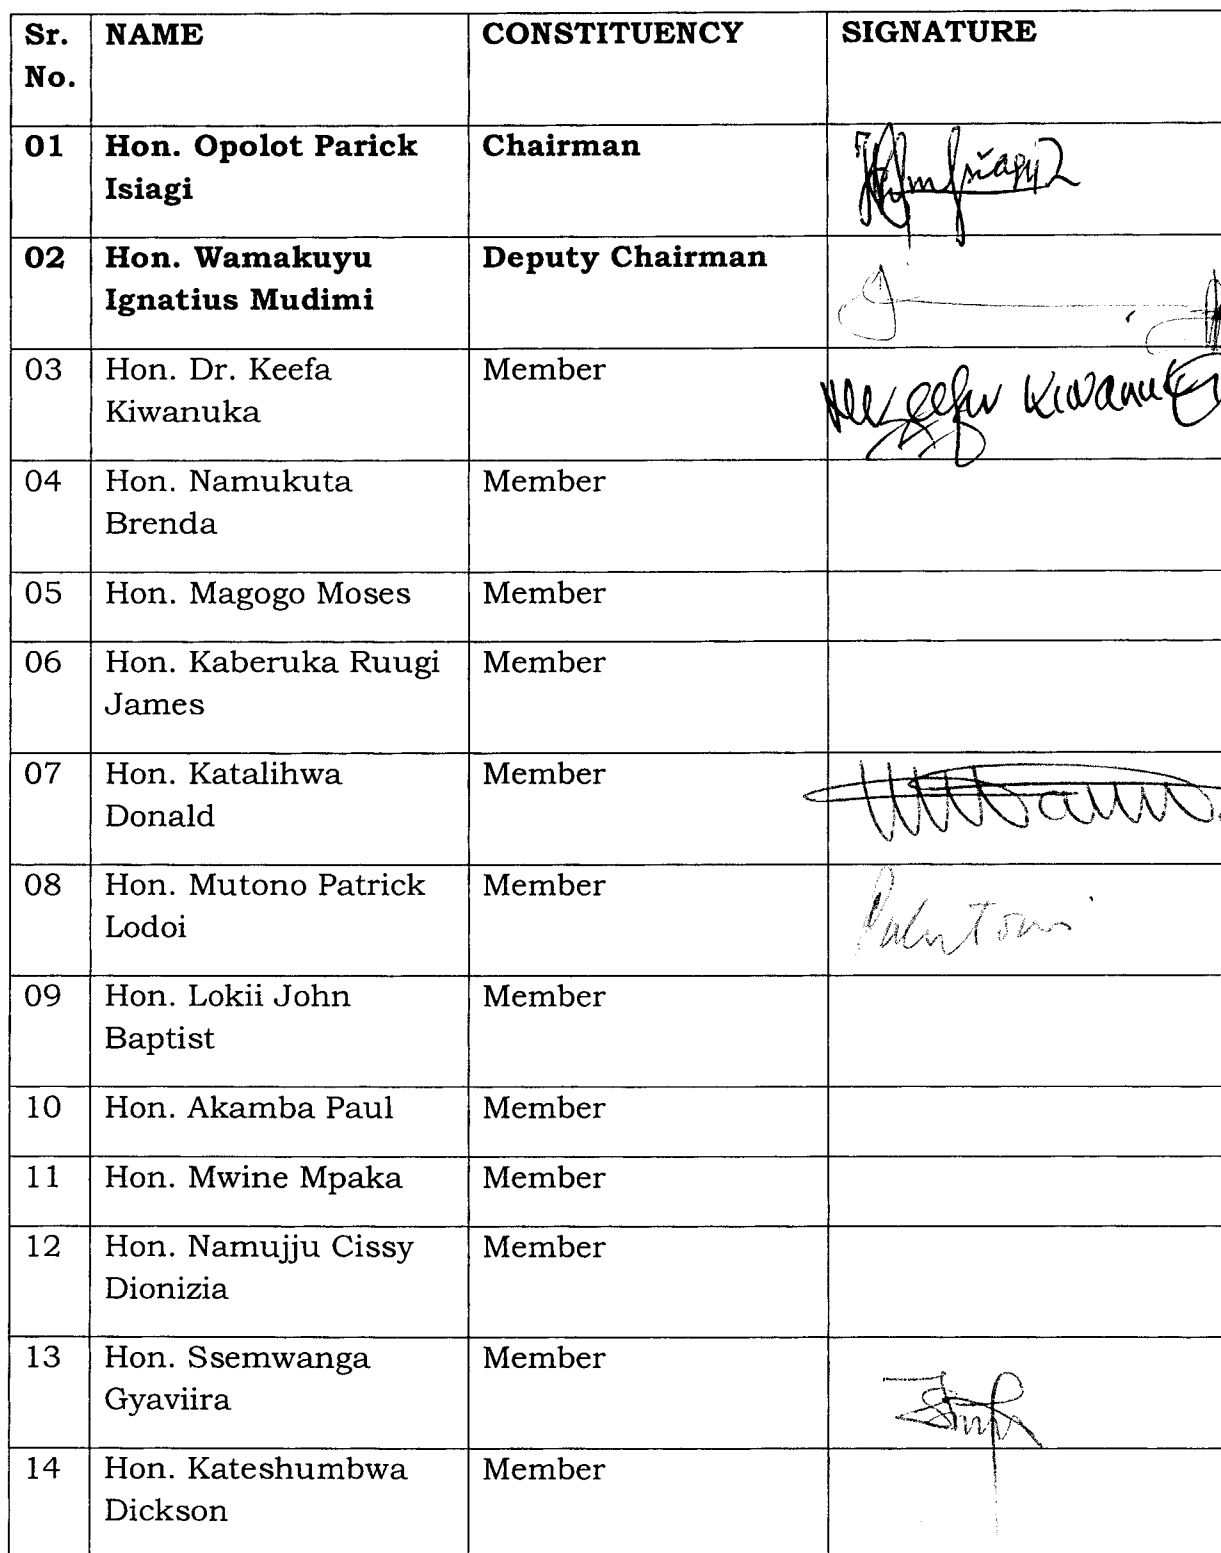 Sr. No.
NAME
CONSTITUENCY
SIGNATURE
01
Hon. Opolot Parick
Isiagi
Chairman
02
Hon. Wamakuyu
Ignatius Mudimi
Deputy Chairman
03
Hon. Dr. Keefa
Kiwanuka
Member
Kiwanuka
04
Hon. Namukuta
Brenda
Member
05
Hon. Magogo Moses
Member
06
Hon. Kaberuka Ruugi
James
Member
07
Hon. Katalihwa
Donald
Member
08
Hon. Mutono Patrick
Lodoi
Member
09
Hon. Lokii John
Baptist
Member
10
Hon. Akamba Paul
Member
11
Hon. Mwine Mpaka
Member
12
Hon. Namujju Cissy
Dionizia
Member
13
Hon. Ssemwanga
Gyaviira
Member
14
Hon. Kateshumbwa
Dickson
Member